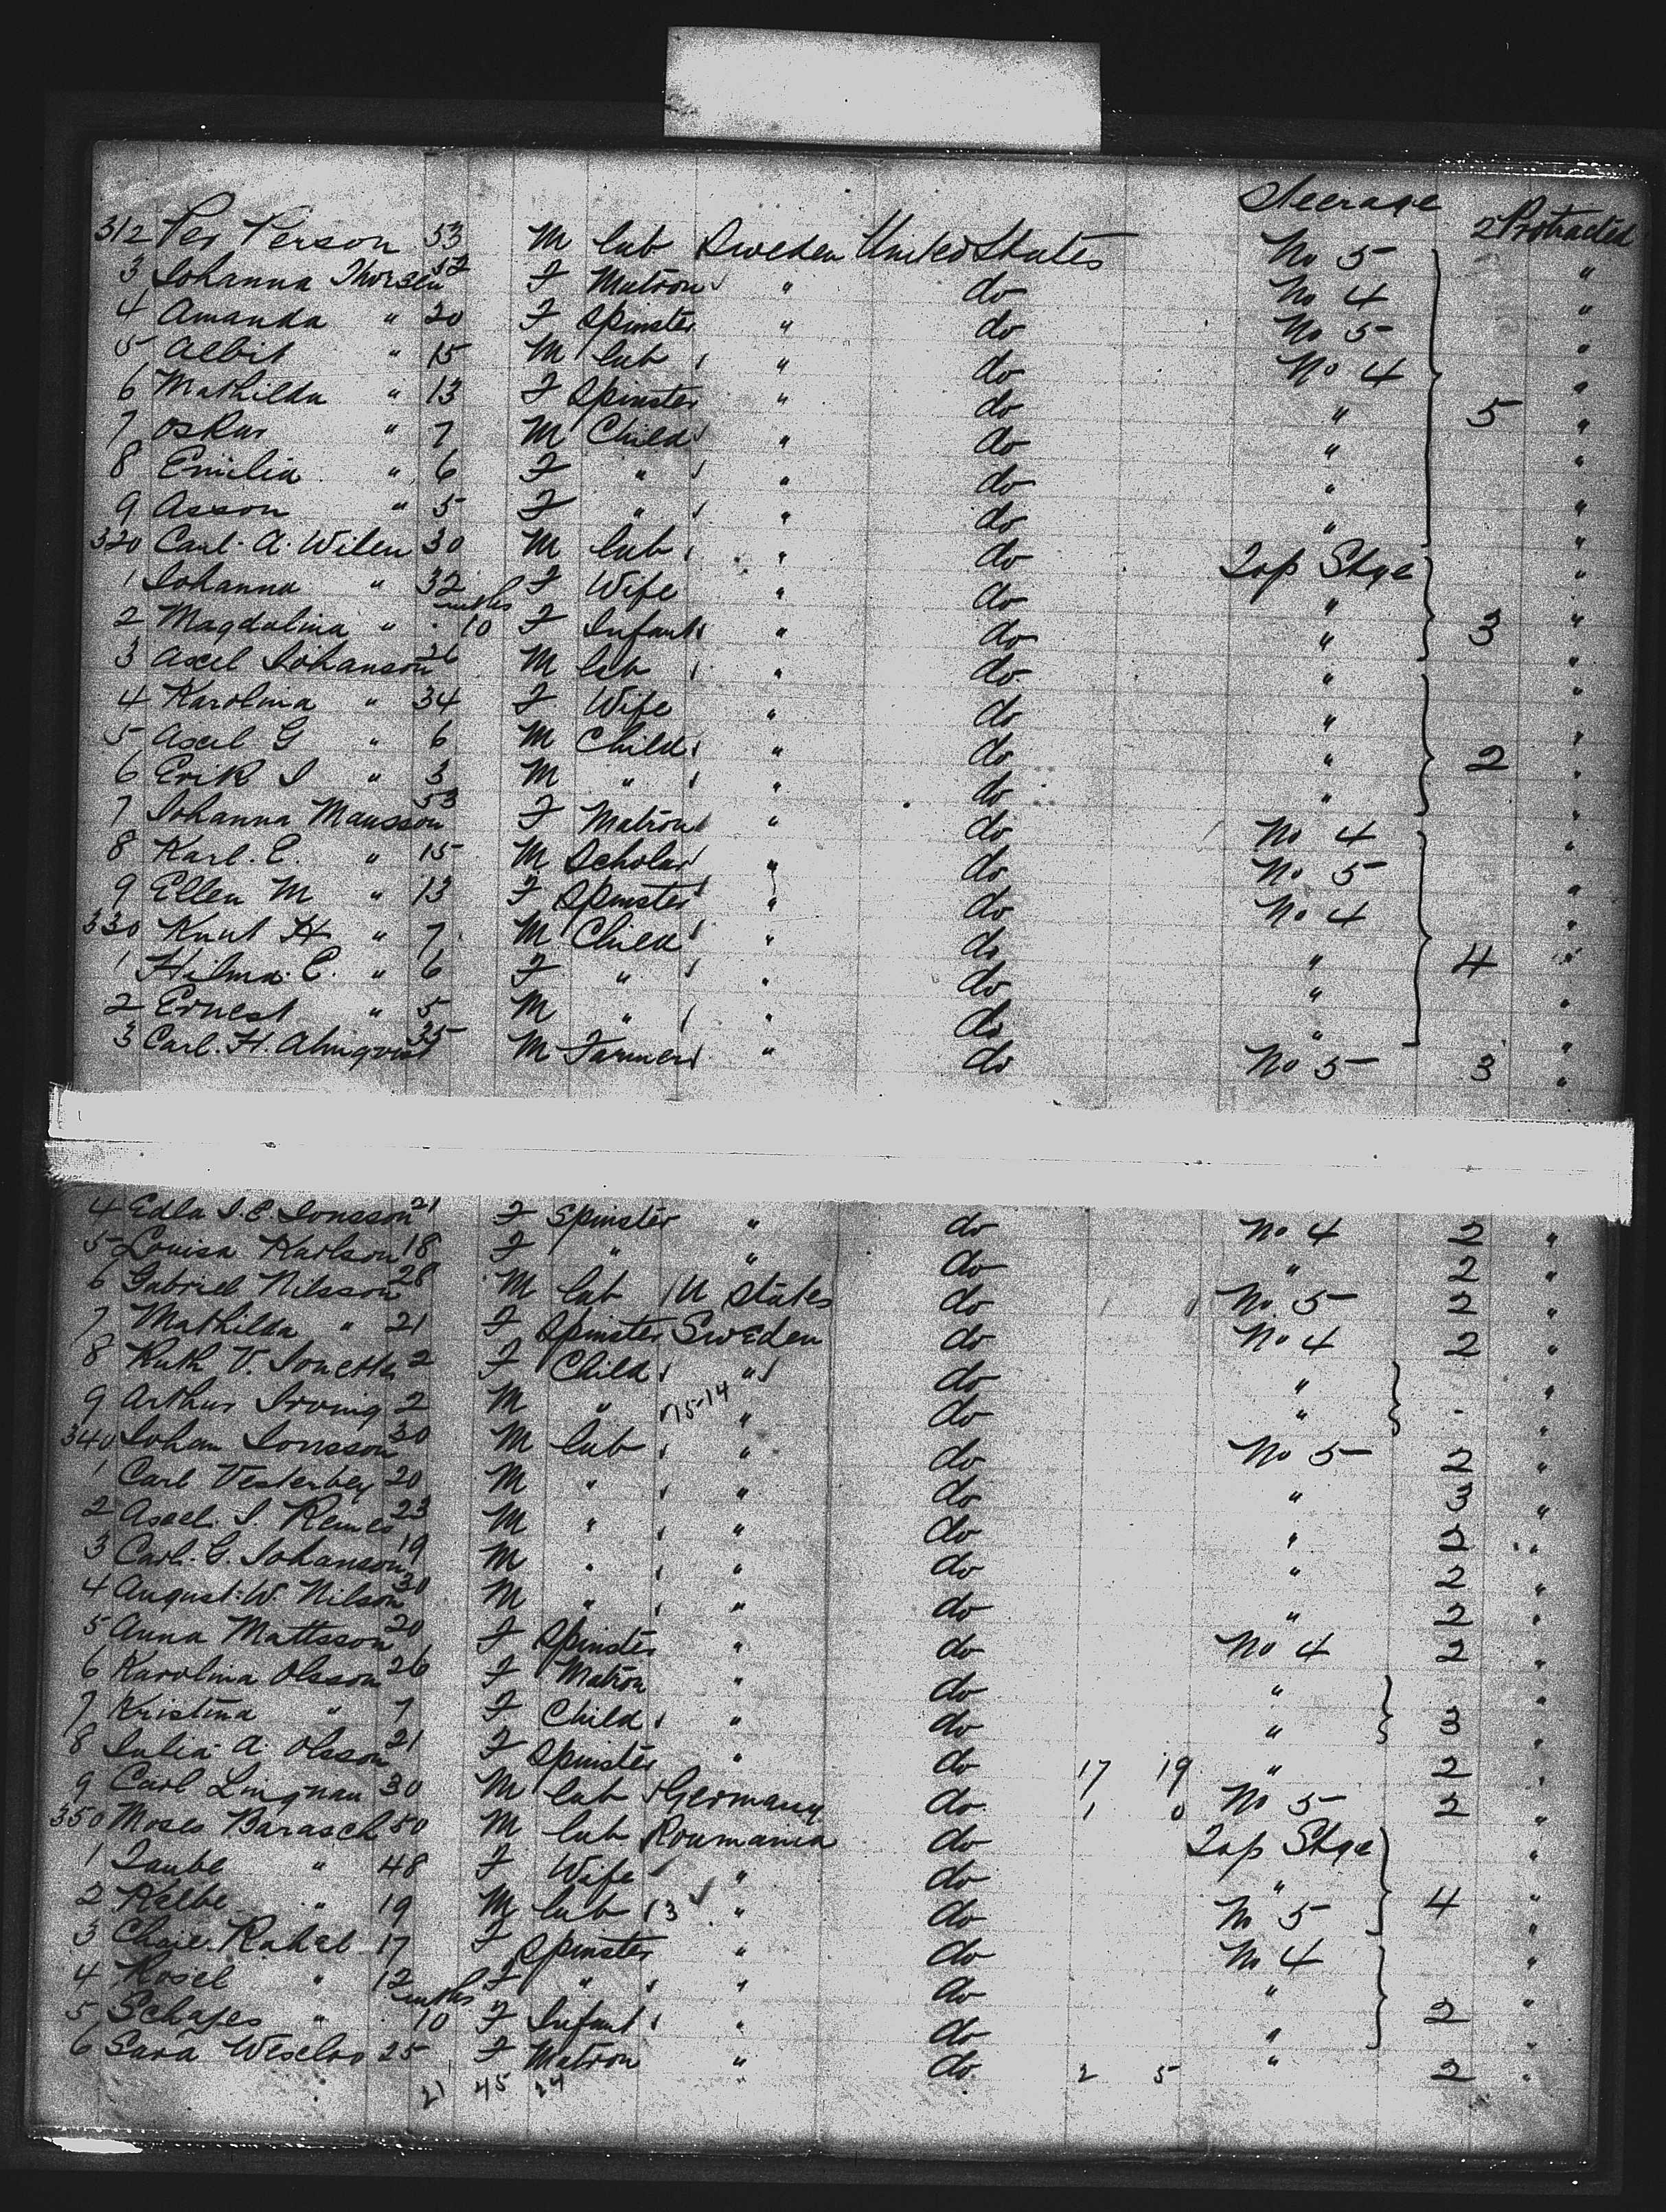 Steerage
312 Per Person 53 M lab Sweden United States No 5 2 Protracted
3 Johanna Thorsen 52 F Matron " do No 4 "
4 Amanda " 20 F Spinster " do No 5 "
5 Albit " 15 M lab " do No 4 "
6 Mathilda " 13 F Spinster " do " 5 "
7 Oskar " 7 M Child " do " "
8 Emilia " 6 F " " do " "
9 Asson " 5 F " " do " "
320 Carl A. Wilen 30 M lab " do Top Stge "
1 Johanna " 32 F Wife " do " "
2 Magdalina " mths 10 F Infant " do " 3 "
3 Axel Johanson 36 M lab " do " "
4 Karolina " 34 F Wife " do " "
5 Axel G " 6 M Child " do " 2 "
6 Erik J " 3 M " " do " "
7 Johanna Mansson 53 F Matron " do No 4 "
8 Karl. E. " 15 M Scholar " do No 5 "
9 Ellen M " 13 F Spinster " do No 4 "
330 Knut H " 7 M Child " do " 4 "
1 Hilma. C. " 6 F " " do " "
2 Ernest " 5 M " " do " "
3 Carl. H. Almqvist 35 M Farmer " do No 5 3 "
4 Edla J. E. Jonsson 21 F Spinster " do No 4 2 "
5 Louisa Karlson 18 F " " do " 2 "
6 Gabriel Nilsson 28 M lab U States do No 5 2 "
7 Mathilda " 21 F Spinster Sweden do No 4 2 "
8 Ruth V. 2 F Child " do " "
9 Arthur Irving 2 M " 15-14 " do " - "
340 Johan Jonsson 30 M lab " do No 5 2 "
1 Carl Vesterbey 20 M " " do " 3 "
2 Axel. J. 23 M " " do " 2 "
3 Carl. G. Johanson 19 M " " do " 2 "
4 August. W. Nilson 30 M " " do " 2 "
5 Anna Mattsson 20 F Spinster " do No 4 2 "
6 Karolina Olsson 26 F Matron " do " "
7 Kristina " 7 F Child " do " 3 "
8 Julia A. Olsson 21 F Spinster " do 17 19 " 2 "
9 Carl Lingnau 30 M lab Germany do 1 0 No 5 2 "
350 Moses Barasch 50 M lab Roumania do Top Stge "
1 Taube " 48 F Wife " do " "
2 Kelbe " 19 M lab 13 " do No 5 4 "
3 Chaie. Rahel 17 F Spinster " do No 4 "
4 Rosel " 12 F " " do " "
5 Schajes " mths 10 F Infant " do " 2 "
6 Sara 25 F Matron " do 2 5 " 2 "
21 45 24